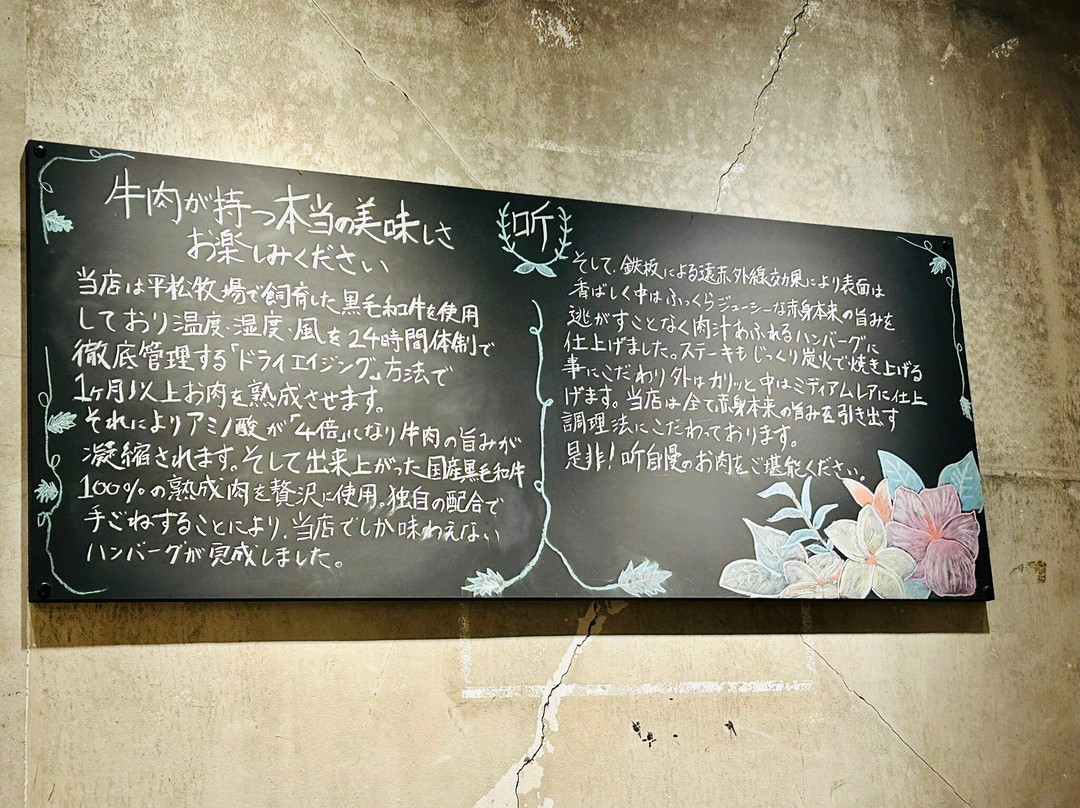 牛肉が持つ本当の美味しさ
お楽しみください
当店は平松牧場で飼育した黒毛和牛を使用
しており温度・湿度・風を24時間体制で
徹底管理する「ドライエイジング」方法で
1ヶ月以上お肉を熟成させます。
それによりアミノ酸が「4倍」になり牛肉の旨みが
凝縮されます。そして出来上がった国産黒毛和牛
100%の熟成肉を贅沢に使用。独自の配合で
手ごねすることにより、当店でしか味わえない
ハンバーグが完成しました。
听
そして、鉄板による遠赤外線効果により表面は
香ばしく中はふっくらジューシーな赤身本来の旨みを
逃がすことなく肉汁あふれるハンバーグに
仕上げました。ステーキもじっくり炭火で焼き上げる
事にこだわり外はカリッと中はミディアムレアに仕上
げます。当店は全て赤身本来の旨みを引き出す
調理法にこだわっております。
是非!听自慢のお肉をご堪能ください。